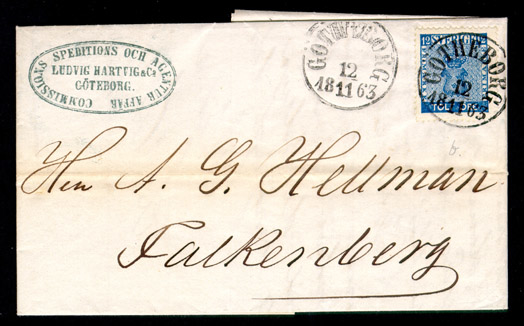 COMMISSIONS SPEDITIONS OCH AGENTUR AFFÄR
LUDVIG HARTVIG & Co
GÖTEBORG.
GÖTHEBORG
12
18 11 63
GÖTHEBORG
12
18 11 63
Herr A. G. Hellman
Falkenberg